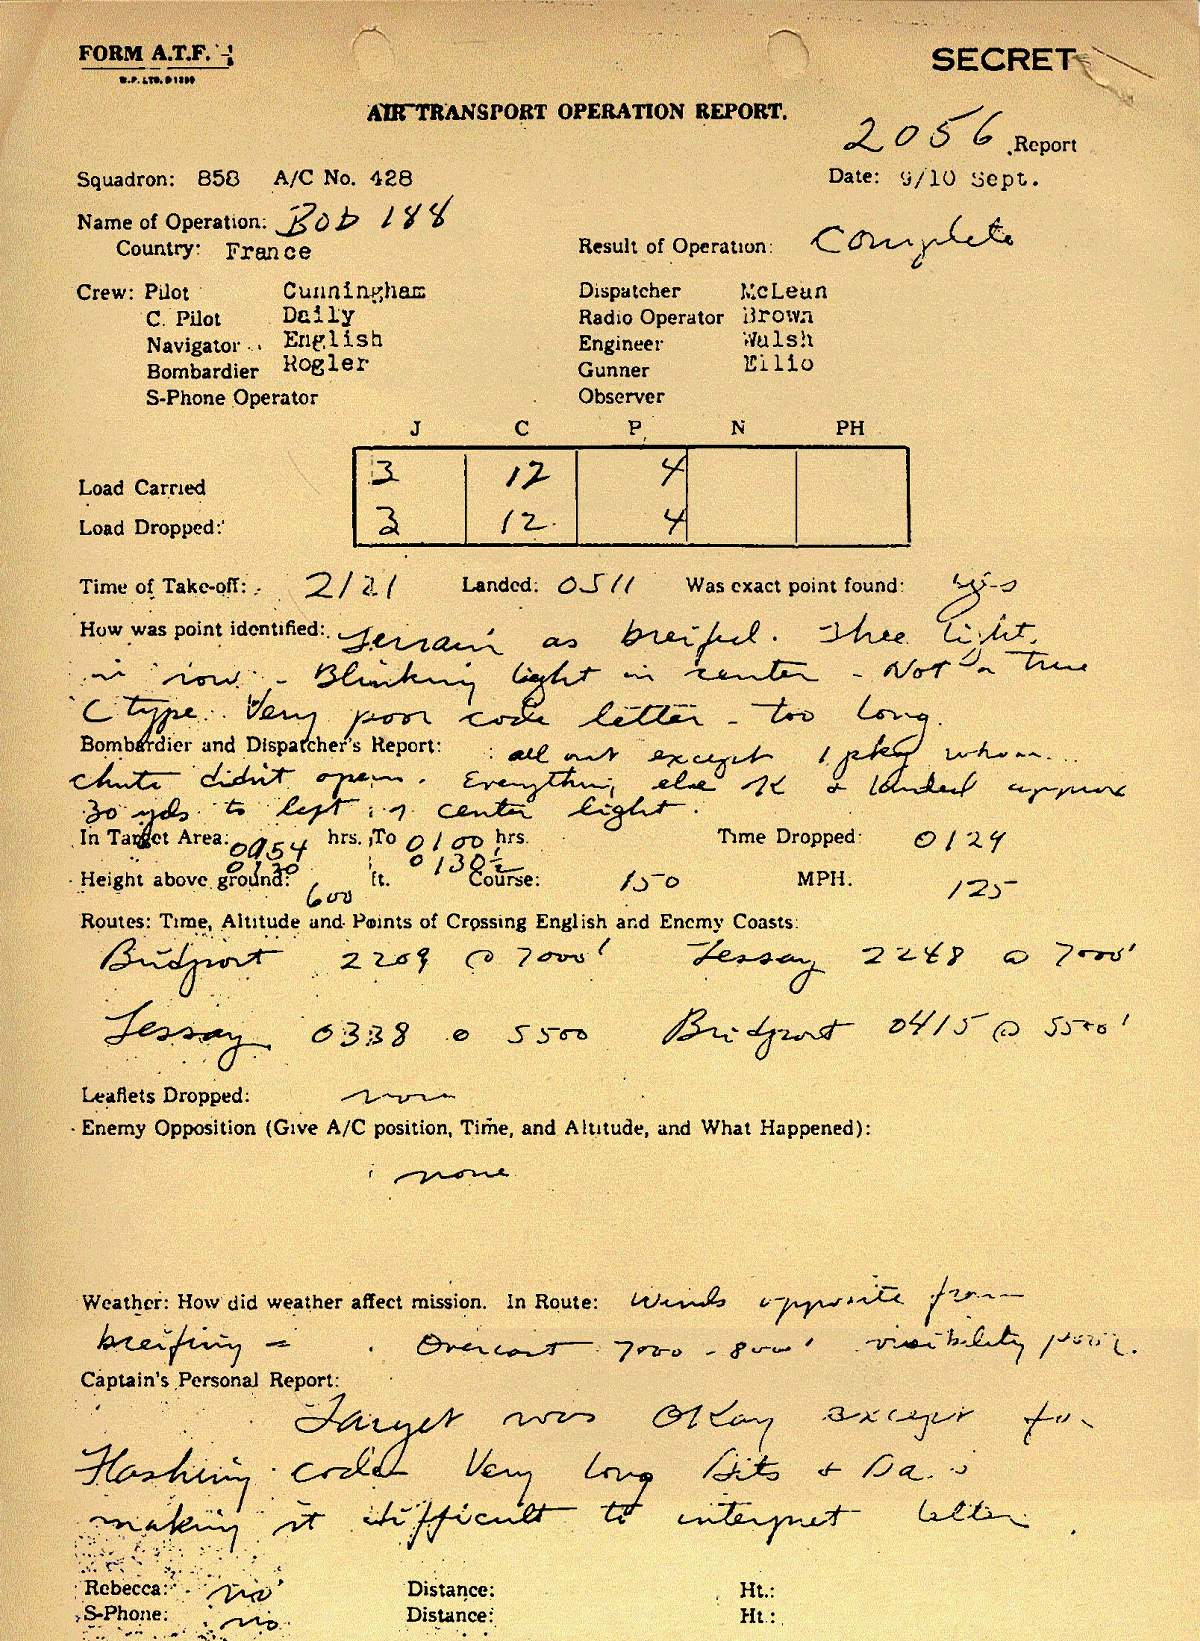 FORM A.T.F.
W.P. LTD. D1390
SECRET
AIR TRANSPORT OPERATION REPORT.
2056 Report
Squadron: 858 A/C No. 428 Date: 9/10 Sept.
Name of Operation: Bob 188
Country: France Result of Operation: Complete
Crew: Pilot Cunningham Dispatcher McLean
C. Pilot Daily Radio Operator Brown
Navigator English Engineer Walsh
Bombardier Rogler Gunner Ellio
S-Phone Operator Observer
J C P N PH
Load Carried 3 12 4
Load Dropped: 3 12 4
Time of Take-off: 2121 Landed: 0511 Was exact point found: yes
How was point identified: Terrain as breifed. Three light
in row - Blinking light in center - Not a true
C type. Very poor code letter - too long.
Bombardier and Dispatcher's Report: all out except 1 pkg whom
chute didn't open. Everything else OK & landed approx
30 yds to left of center light.
In Target Area: 0054 hrs. To 0100 hrs. Time Dropped: 0129
0120 0130½
Height above ground: 600 ft. Course: 150 MPH. 125
Routes: Time, Altitude and Points of Crossing English and Enemy Coasts:
Bridport 2209 @ 7000' Lessay 2248 @ 7000'
Lessay 0338 @ 5500 Bridport 0415 @ 5500'
Leaflets Dropped: none
Enemy Opposition (Give A/C position, Time, and Altitude, and What Happened):
none
Weather: How did weather affect mission. In Route: Winds opposite from
breifing - Overcast 7000 - 8000' visibility poor.
Captain's Personal Report:
Target was OKay except for
Flashing code Very long Dits & Da s
making it difficult to interpret letter.
Rebecca: no Distance: Ht.:
S-Phone: no Distance: Ht.: